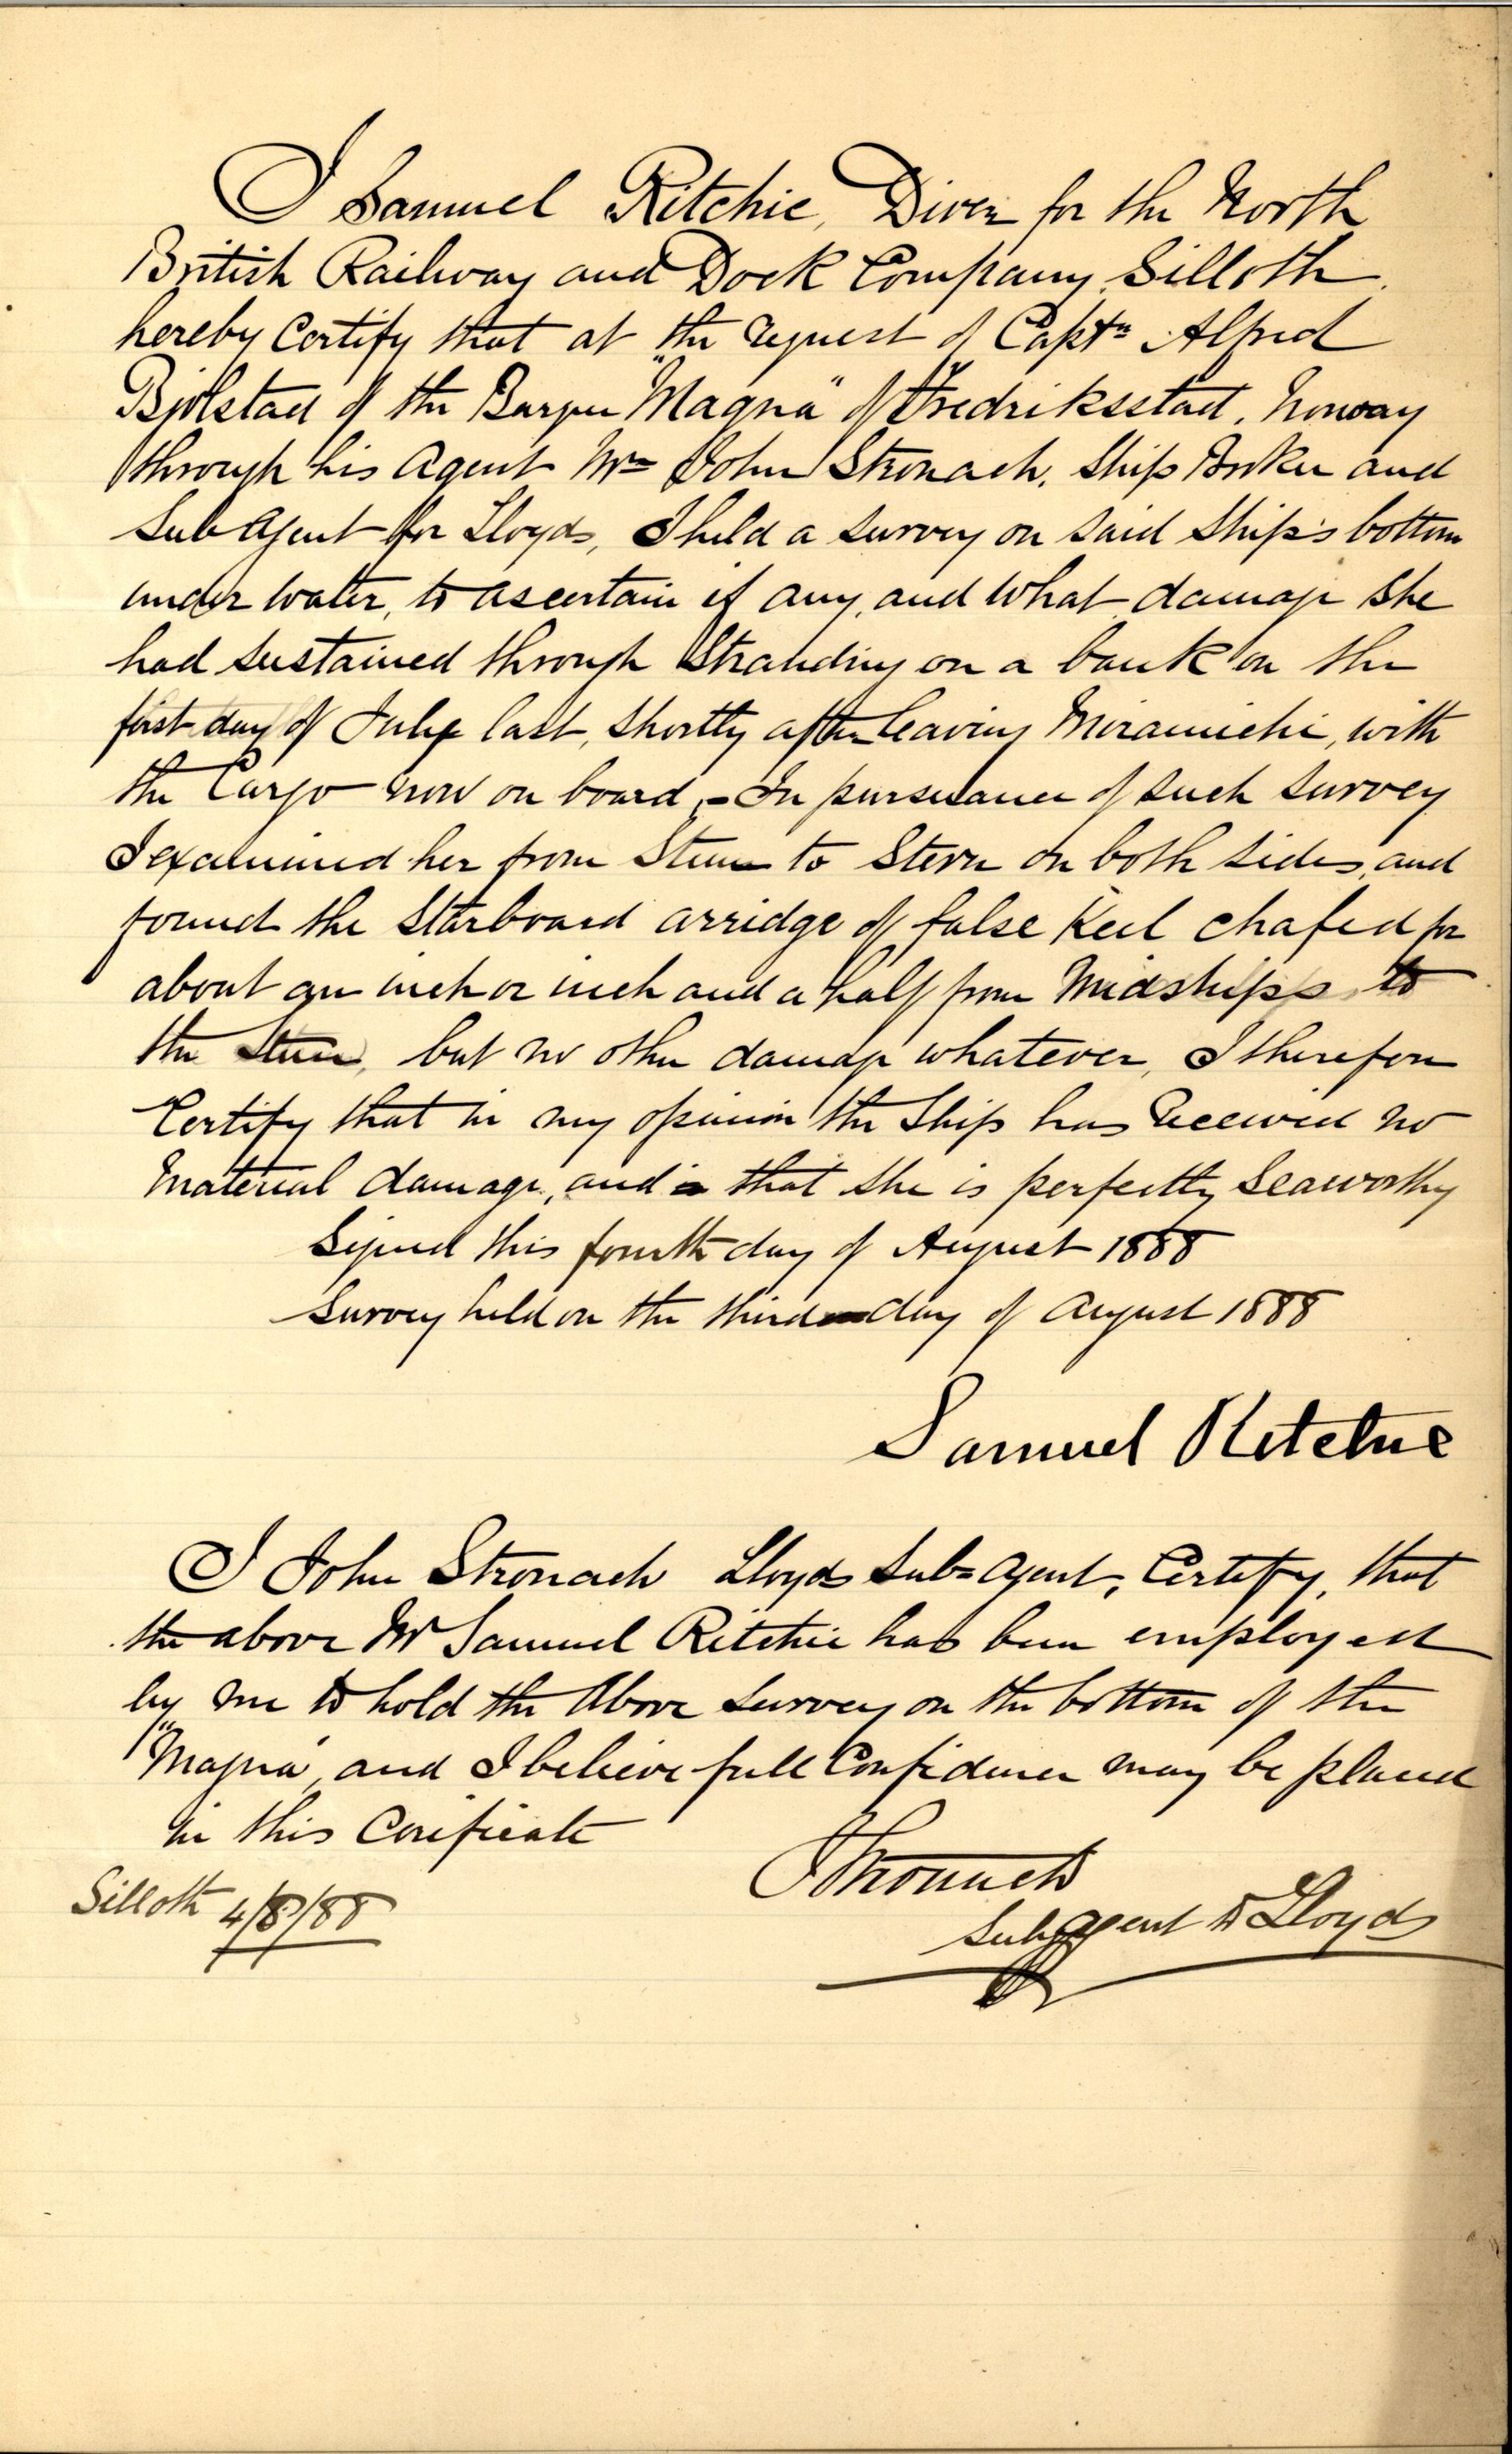 I Samuel Ritchie, Diver for the North
British Railway and Dock Company, Silloth.
hereby Certify that at the request of Captn Alfred
Bjölstad of the Barque "Magna" of Fredriksstad, Norway
through his Agent Mr John Stronach, Ship Broker and
Sub Agent for Lloyds, I held a survey on said Ship's bottom
under water, to ascertain if any, and what damage she
had sustained through Stranding on a bank on the
first day of July last, shortly after leaving Miramichi, with
the Cargo now on board,- In pursuance of such survey
I examined her from Stem to Stern on both sides, and
found the Starboard arridge of false Keel chafed for
about an inch or inch and a half from Midships to
the Stem, but no other damage whatever, I therefore
Certify that in my opinion the Ship has Received no
Material damage, and that she is perfectly Seaworthy
Signed this fourth day of August 1888
Survey held on the third day of August 1888
Samuel Ritchie
I John Stronach Lloyds Sub=Agent, Certify, that
the above Mr Samuel Ritchie has been employed
by me to hold the Above Survey on the bottom of the
"Magna", and I believe full Confidence may be placed
in this Cerificate
JStronach
Silloth 4/8/88
Sub Agent to Lloyds